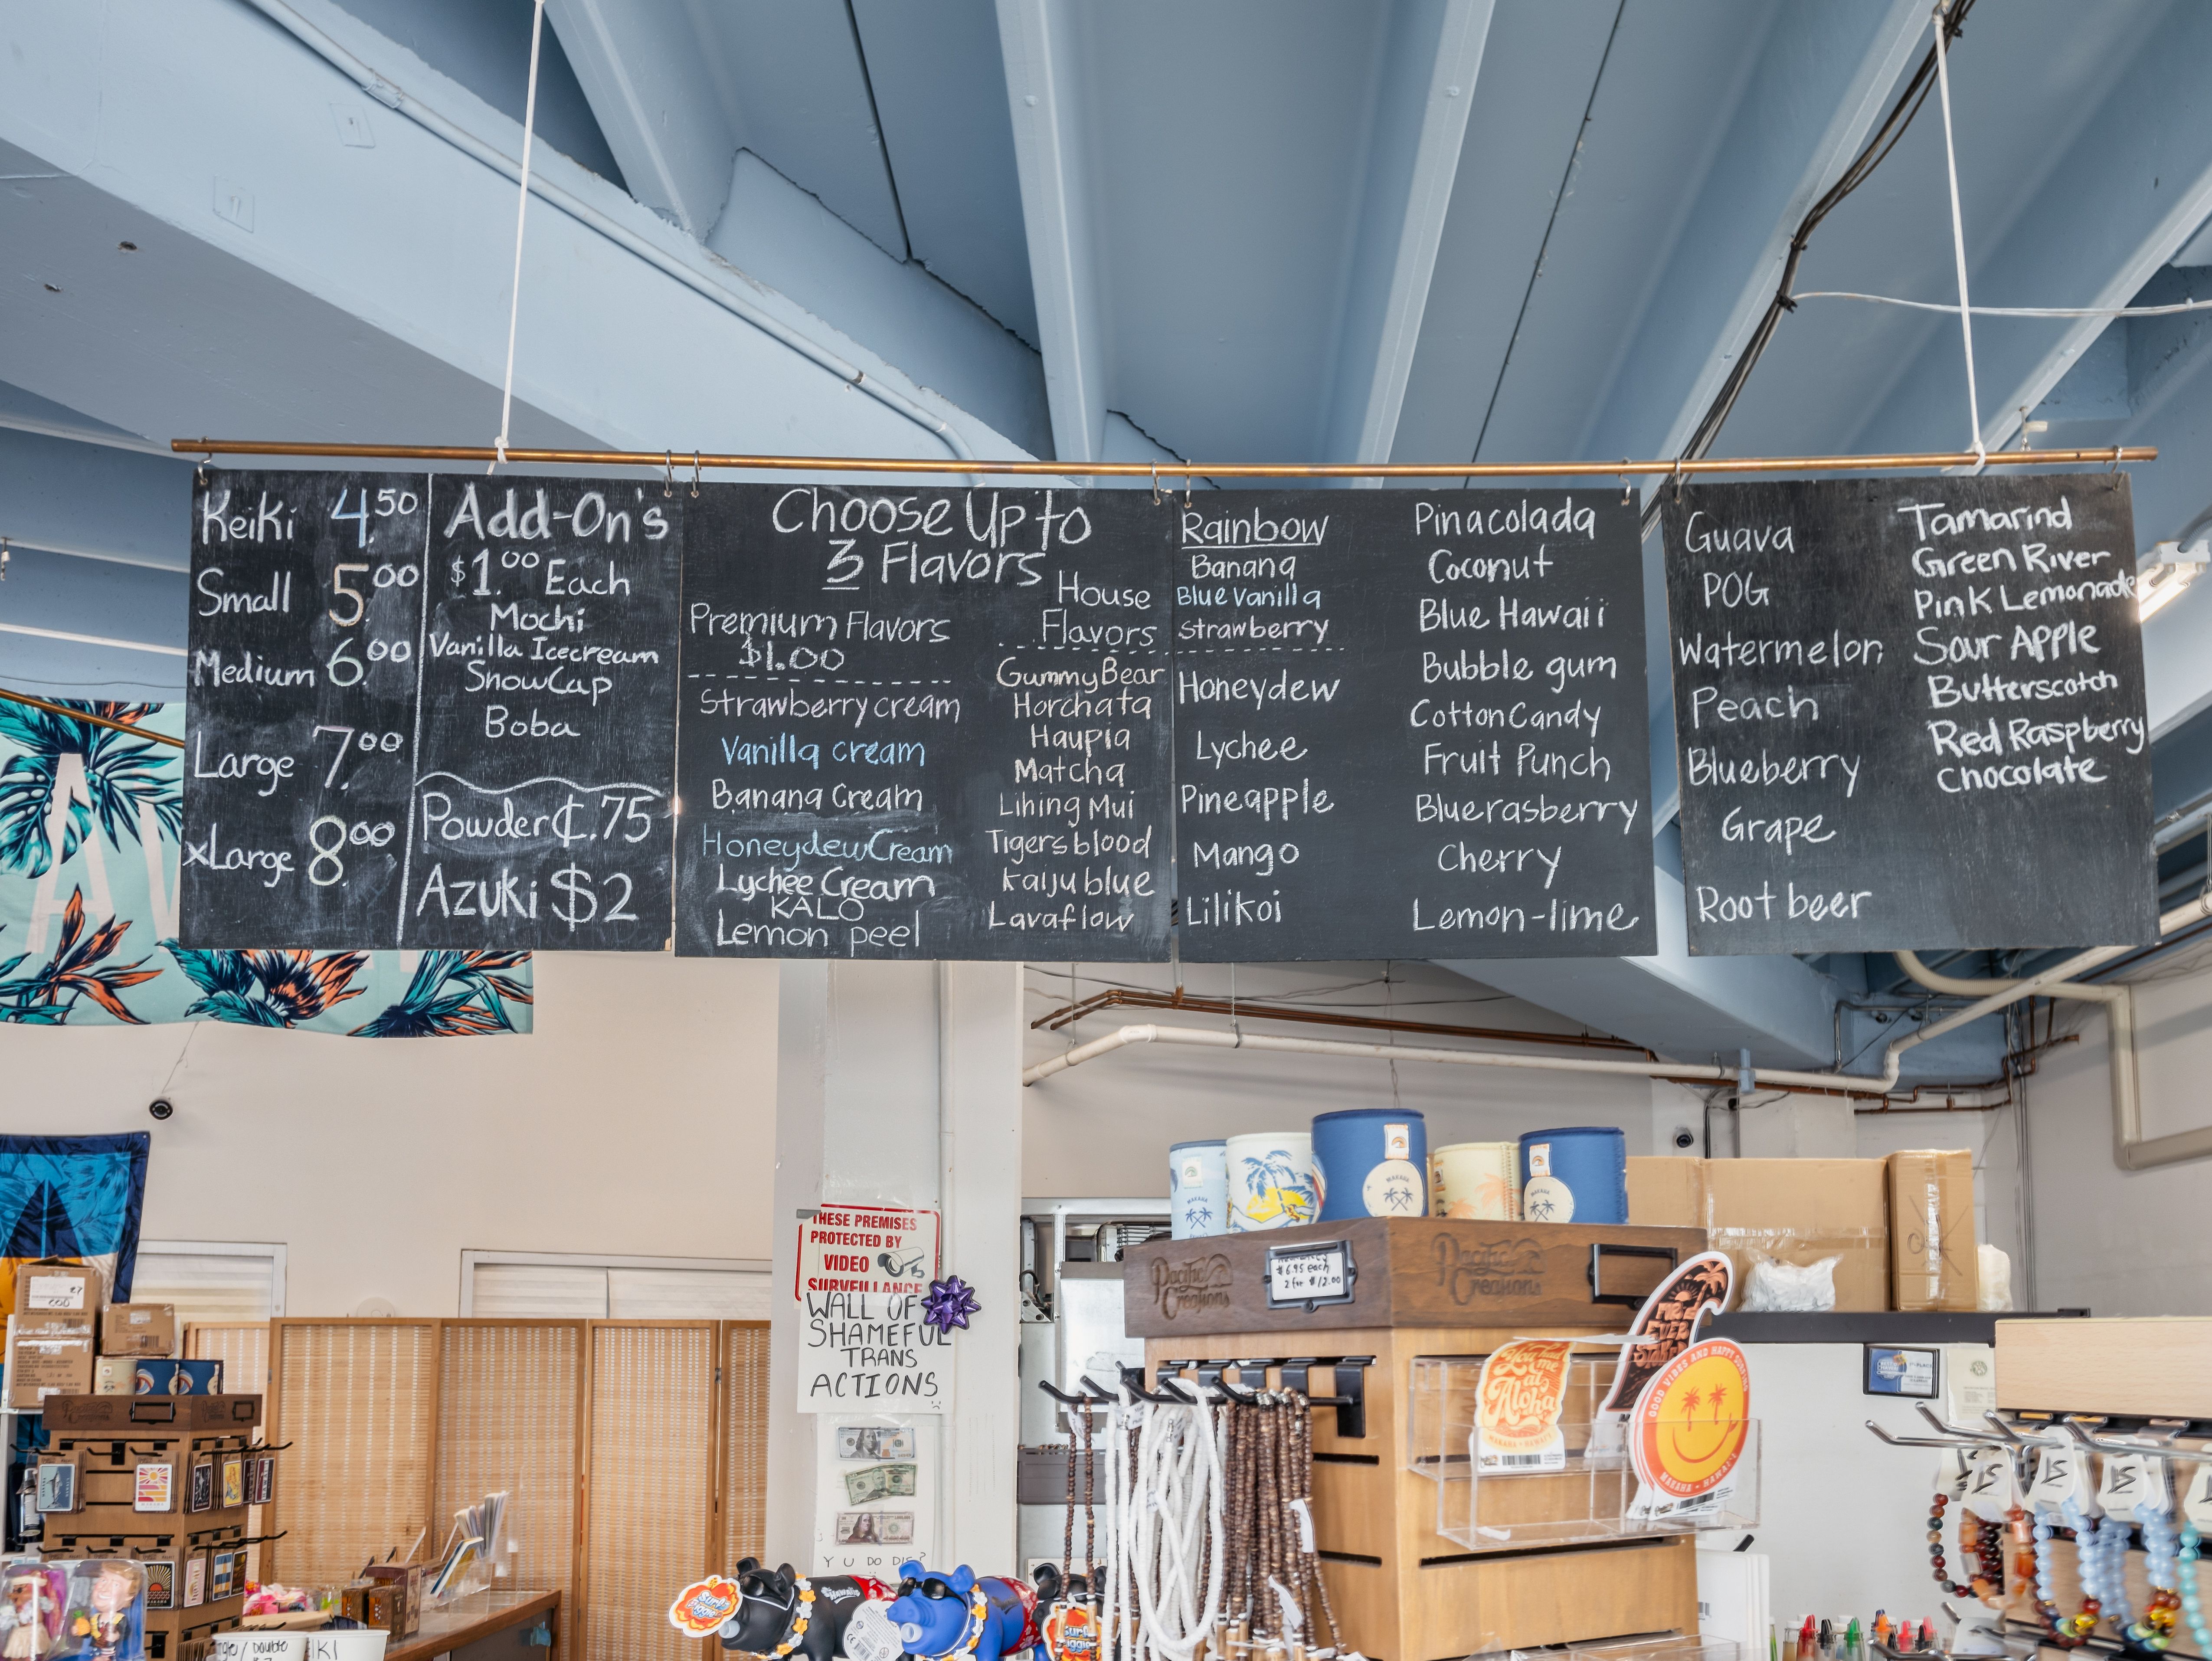 Keiki 4.50
Small 5.00
Medium 6.00
Large 7.00
xLarge 8.00
Add-On's
$1.00 Each
Mochi
Vanilla Icecream
SnowCap
Boba
Powder ¢.75
Azuki $2
Choose Up to
3 Flavors
Premium Flavors
$1.00
Strawberry cream
Vanilla cream
Banana Cream
Honeydew Cream
Lychee Cream
KALO
Lemon peel
House
Flavors
Gummy Bear
Horchata
Haupia
Matcha
Lihing Mui
Tigersblood
Kaiju blue
Lavaflow
Rainbow
Banana
Blue vanilla
Strawberry
Honeydew
Lychee
Pineapple
Mango
Lilikoi
Pinacolada
Coconut
Blue Hawaii
Bubble gum
Cotton Candy
Fruit Punch
Bluerasberry
Cherry
Lemon-lime
Guava
POG
Watermelon
Peach
Blueberry
Grape
Root beer
Tamarind
Green River
Pink Lemonade
Sour APPle
Butterscotch
Red Raspberry
Chocolate
THESE PREMISES
PROTECTED BY
VIDEO
SURVEILLANCE
WALL OF
SHAMEFUL
TRANS
ACTIONS
Y U DO DIS?
Pacific
Creations
$6.95 each
2 for $12.00
Pacific
Creations
MAKAHA
MAKAHA
MAKAHA
You had
me
at
Aloha
MAKAHA · HAWAI'I
GOOD VIBES AND HAPPY
MAKAHA · HAWAI'I
Surf's
Surf's
15
15
15